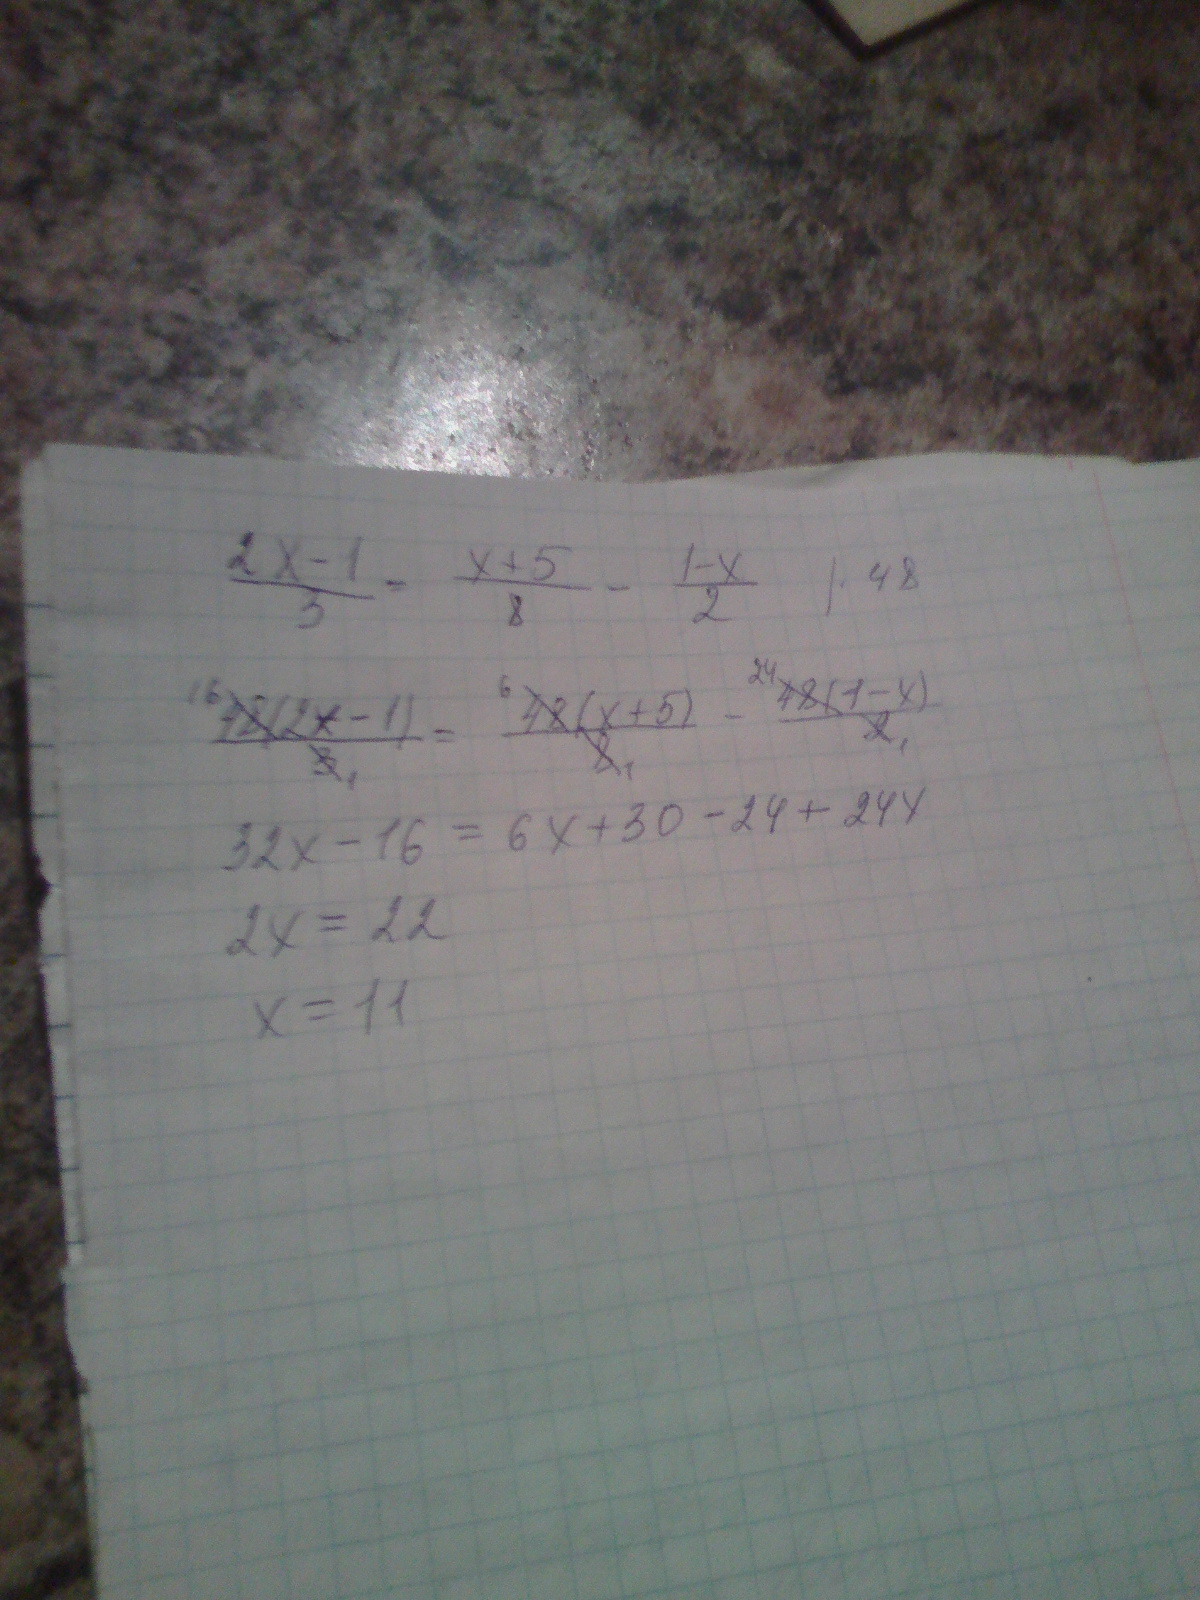 (2x-1)/3 = (x+5)/8 - (1-x)/2 |· 48
16 48(2x-1)/3 1 = 6 48(x+5)/8 1 - 24 48(1-x)/2 1
32x-16 = 6x+30-24+24x
2x = 22
x = 11